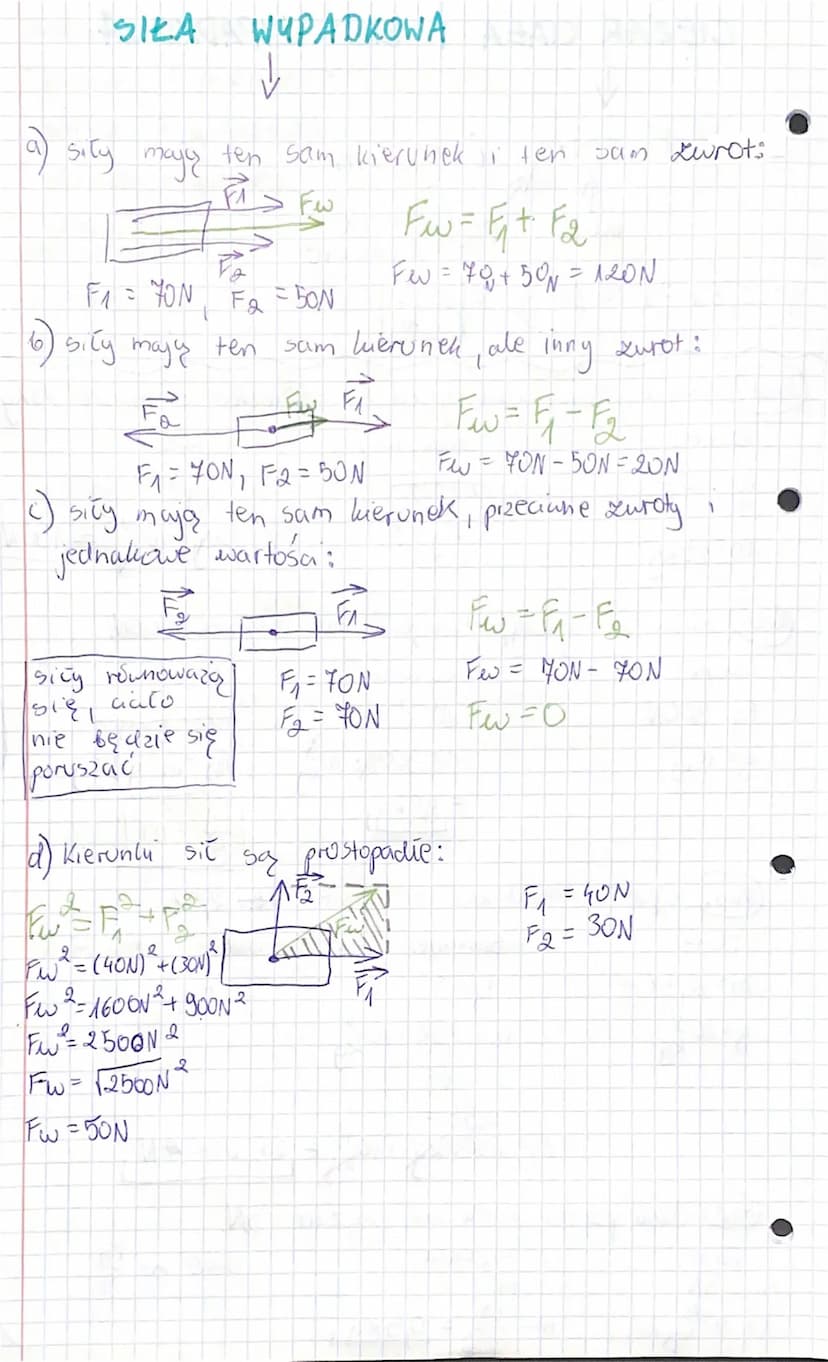 SIŁA WYPADKOWA
a) siły mają ten sam kierunek i ten sam zwrot:
F1 Fw
Fw = F1 + F2
F2
Fw = 70N + 50N = 120N
F1 = 70N, F2 = 50N
b) siły mają ten sam kierunek, ale inny zwrot:
F2 Fw F1
Fw = F1 - F2
F1 = 70N, F2 = 50N
Fw = 70N - 50N = 20N
c) siły mają ten sam kierunek, przeciwne zwroty i
jednakowe wartości:
F2 F1
Fw = F1 - F2
siły równoważą
się, ciało
nie będzie się
poruszać
F1 = 70N
F2 = 70N
Fw = 70N - 70N
Fw = 0
d) Kierunki sił są prostopadłe:
F2
Fw
F1
F1 = 40N
F2 = 30N
Fw² = F1² + F2²
Fw² = (40N)² + (30N)²
Fw² = 1600N² + 900N²
Fw² = 2500N²
Fw = √2500N²
Fw = 50N